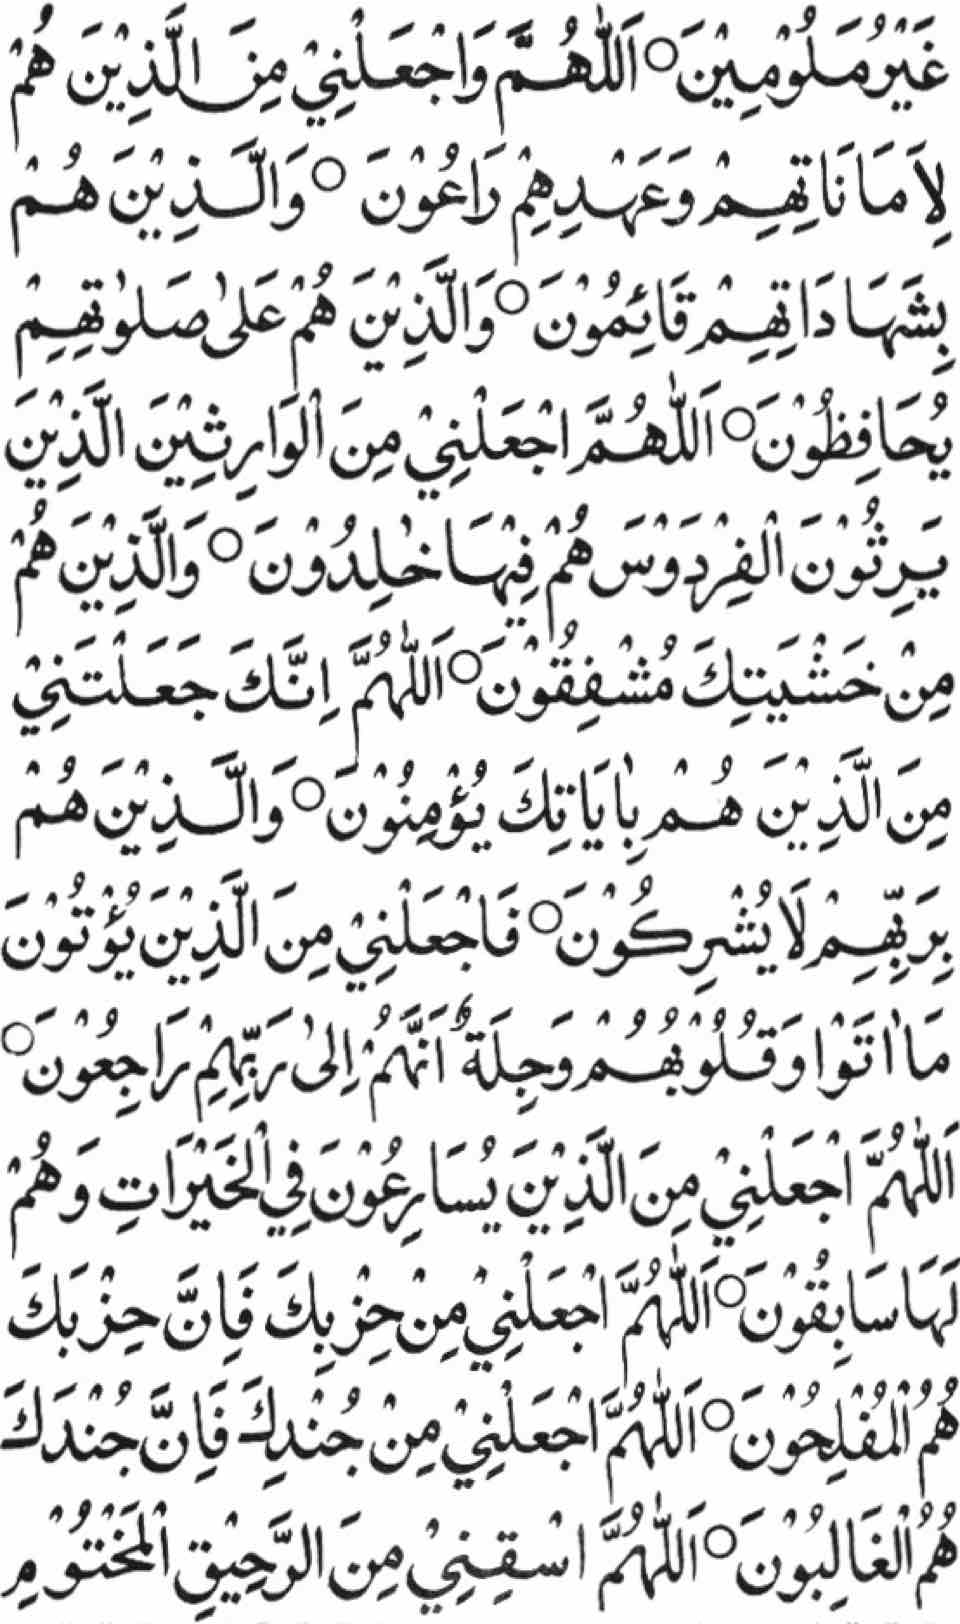 غَيْرُ مَلُوْمِيْنَ○ اَللّٰهُمَّ وَاجْعَلْنِيْ مِنَ الَّذِيْنَ هُمْ
لِاَمَانَاتِهِمْ وَعَهْدِهِمْ رَاعُوْنَ ○ وَالَّذِيْنَ هُمْ
بِشَهَادَاتِهِمْ قَائِمُوْنَ○ وَالَّذِيْنَ هُمْ عَلٰى صَلٰوتِهِمْ
يُحَافِظُوْنَ○ اَللّٰهُمَّ اجْعَلْنِيْ مِنَ الْوَارِثِيْنَ الَّذِيْنَ
يَرِثُوْنَ الْفِرْدَوْسَ هُمْ فِيْهَا خٰلِدُوْنَ○ وَالَّذِيْنَ هُمْ
مِنْ خَشْيَتِكَ مُشْفِقُوْنَ○ اَللّٰهُمَّ اِنَّكَ جَعَلْتَنِيْ
مِنَ الَّذِيْنَ هُمْ بِاٰيَاتِكَ يُؤْمِنُوْنَ○ وَالَّذِيْنَ هُمْ
بِرَبِّهِمْ لَا يُشْرِكُوْنَ○ فَاجْعَلْنِيْ مِنَ الَّذِيْنَ يُؤْتُوْنَ
مَا اٰتَوْا وَقُلُوْبُهُمْ وَجِلَةٌ اَنَّهُمْ اِلٰى رَبِّهِمْ رَاجِعُوْنَ○
اَللّٰهُمَّ اجْعَلْنِيْ مِنَ الَّذِيْنَ يُسَارِعُوْنَ فِي الْخَيْرَاتِ وَهُمْ
لَهَا سَابِقُوْنَ○ اَللّٰهُمَّ اجْعَلْنِيْ مِنْ حِزْبِكَ فَاِنَّ حِزْبَكَ
هُمُ الْمُفْلِحُوْنَ○ اَللّٰهُمَّ اجْعَلْنِيْ مِنْ جُنْدِكَ فَاِنَّ جُنْدَكَ
هُمُ الْغَالِبُوْنَ○ اَللّٰهُمَّ اسْقِنِيْ مِنَ الرَّحِيْقِ الْمَخْتُوْمِ